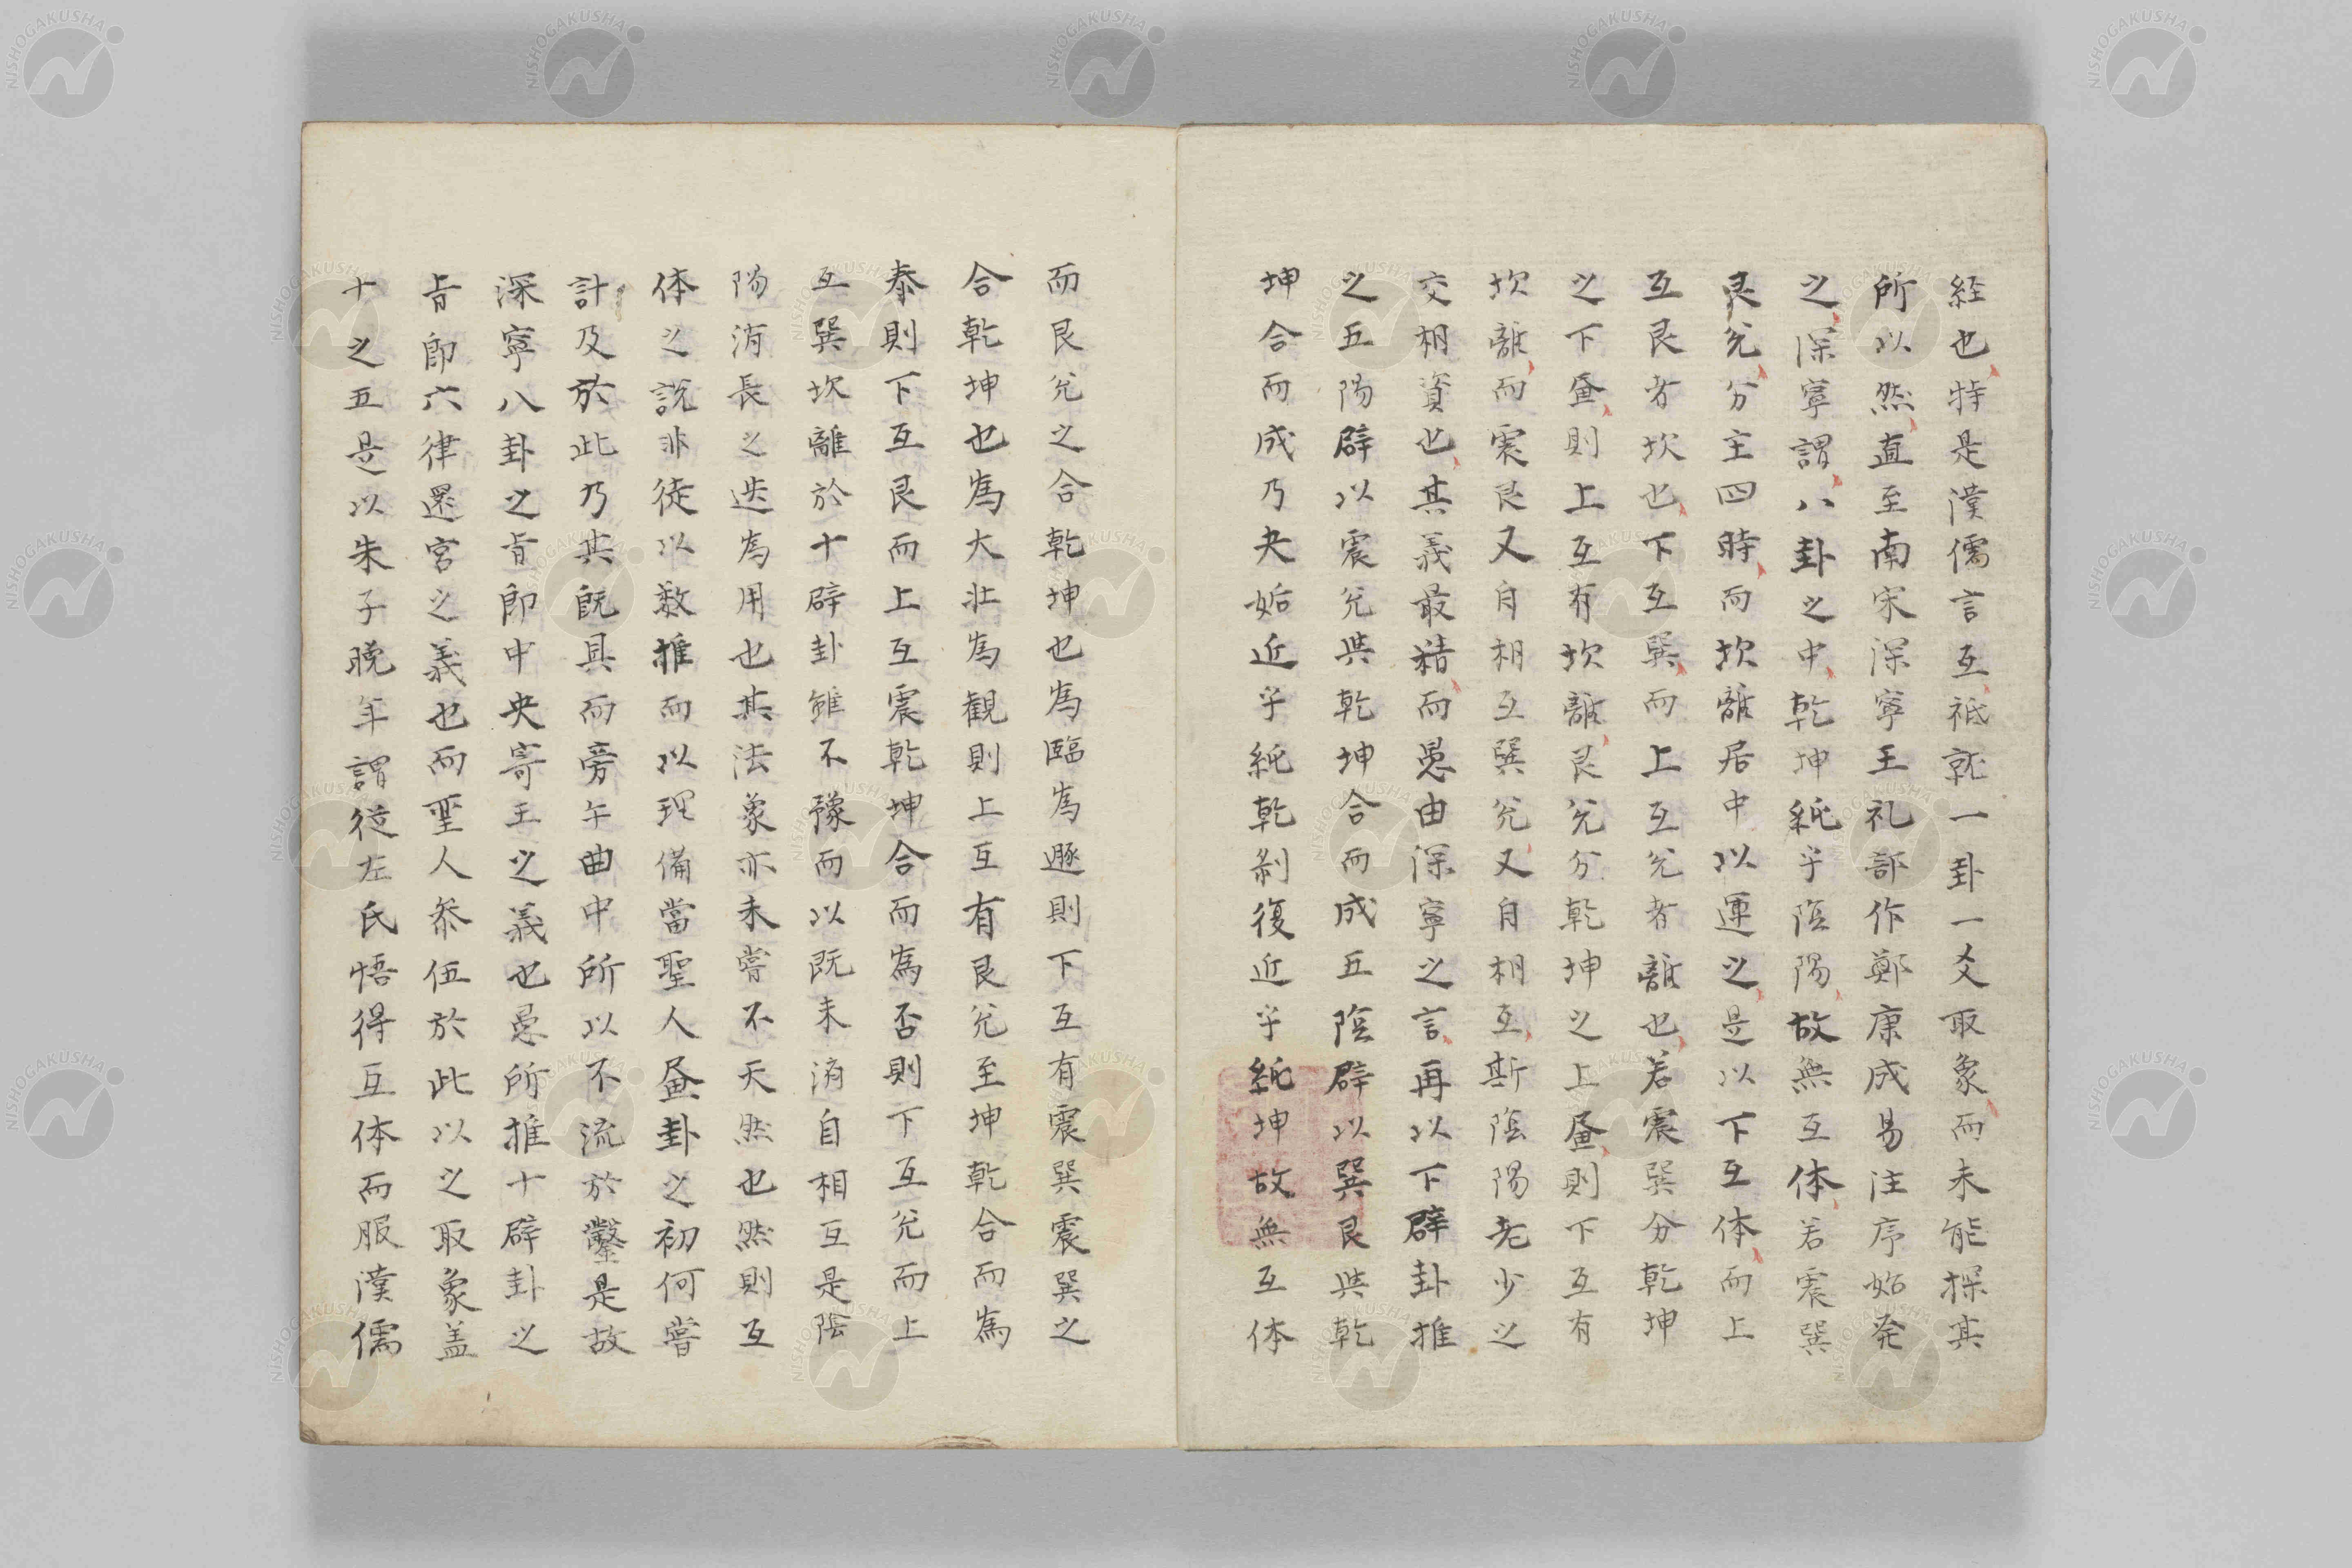 経也特是漢儒言互祗就一卦一爻取象而未能探其
所以然直至南宋深寧王礼部作鄭康成易注序始発
之深寧謂八卦之中乾坤純乎陰陽故無互体若震巽
艮兊分主四時而坎離居中以運之是以下互体而上
互艮者坎也下互巽而上互兊者離也若震巽分乾坤
之下畫則上互有坎離艮兊分乾坤之上畫則下互有
坎離而震艮又自相互巽兊又自相互斯陰陽老少之
交相資也其義最精而愚由深寧之言再以下辟卦推
之五陽辟以震兊與乾坤合而成五陰辟以巽艮與乾
坤合而成乃夬姤近乎純乾剝復近乎純坤故無互体
而艮兊之合乾坤也為臨為遯則下互有震巽震巽之
合乾坤也為大壮為観則上互有艮兊至坤乾合而為
泰則下互艮而上互震乾坤合而為否則下互兊而上
互巽坎離於十辟卦雖不豫而以既未済自相互是陰
陽消長之迭為用也其法象亦未嘗不天然也然則互
体之說非徒以数推而以理備當聖人畫卦之初何嘗
計及於此乃其既具而旁午曲中所以不流於鑿是故
深寧八卦之旨即中央寄王之義也愚所推十辟卦之
旨即六律還宮之義也而聖人叅伍於此以之取象盖
十之五是以朱子晚年謂從左氏悟得互体而服漢儒
NISHOGAKUSHA